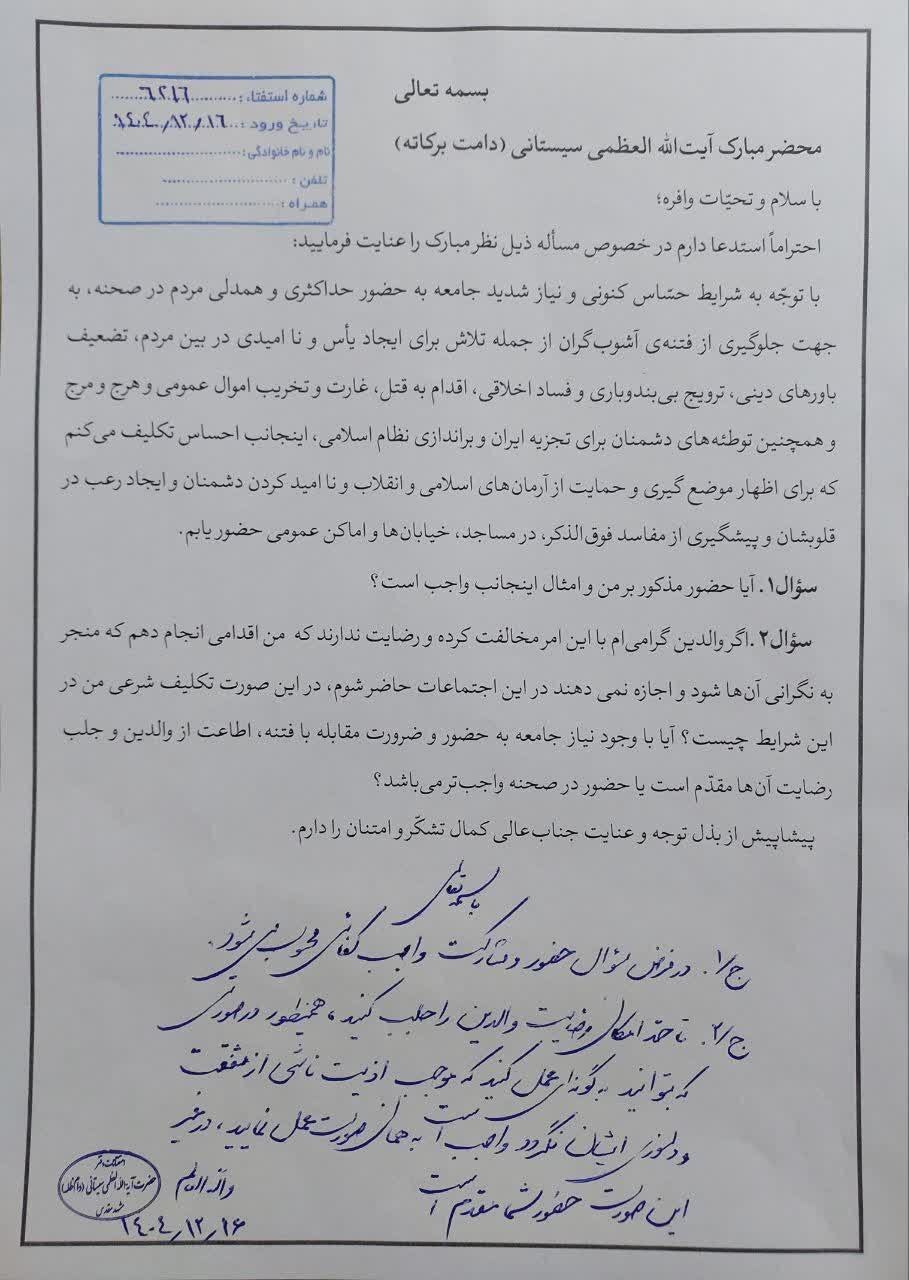 بسمه تعالی
شماره استفتاء: ۶۲۱۶
تاریخ ورود: ۱۴۰۴/۱۲/۱۶
نام و نام خانوادگی:
تلفن:
همراه:
محضر مبارک آیت‌الله العظمی سیستانی (دامت برکاته)
با سلام و تحیّات وافره؛
احتراماً استدعا دارم در خصوص مسأله ذیل نظر مبارک را عنایت فرمایید:
با توجّه به شرایط حسّاس کنونی و نیاز شدید جامعه به حضور حداکثری و همدلی مردم در صحنه، به
جهت جلوگیری از فتنه‌ی آشوب‌گران از جمله تلاش برای ایجاد یأس و نا امیدی در بین مردم، تضعیف
باورهای دینی، ترویج بی‌بندوباری و فساد اخلاقی، اقدام به قتل، غارت و تخریب اموال عمومی و هرج و مرج
و همچنین توطئه‌های دشمنان برای تجزیه ایران و براندازی نظام اسلامی، اینجانب احساس تکلیف می‌کنم
که برای اظهار موضع گیری و حمایت از آرمان‌های اسلامی و انقلاب و نا امید کردن دشمنان و ایجاد رعب در
قلوبشان و پیشگیری از مفاسد فوق‌الذکر، در مساجد، خیابان‌ها و اماکن عمومی حضور یابم.
سؤال۱. آیا حضور مذکور بر من و امثال اینجانب واجب است؟
سؤال۲. اگر والدین گرامی‌ام با این امر مخالفت کرده و رضایت ندارند که من اقدامی انجام دهم که منجر
به نگرانی آن‌ها شود و اجازه نمی دهند در این اجتماعات حاضر شوم، در این صورت تکلیف شرعی من در
این شرایط چیست؟ آیا با وجود نیاز جامعه به حضور و ضرورت مقابله با فتنه، اطاعت از والدین و جلب
رضایت آن‌ها مقدّم است یا حضور در صحنه واجب‌تر می‌باشد؟
پیشاپیش از بذل توجه و عنایت جناب‌عالی کمال تشکّر و امتنان را دارم.
باسمه تعالی
ج/۱. در فرض سؤال حضور و مشارکت واجب کفائی محسوب می شود.
ج/۲. تا حدّ امکان رضایت والدین را جلب کنید، همینطور در صورتی
که بتوانید به گونه‌ای عمل کنید که موجب اذیت ناشی از شفقت
و دلسوزی ایشان نگردد واجب است به همان صورت عمل نمایید، در غیر
این صورت حضور شما مقدم است
والله العالم
۱۴۰۴/۱۲/۱۶
استفتائات دفتر
حضرت آیة الله العظمی سیستانی (دام ظله)
مشهد مقدس